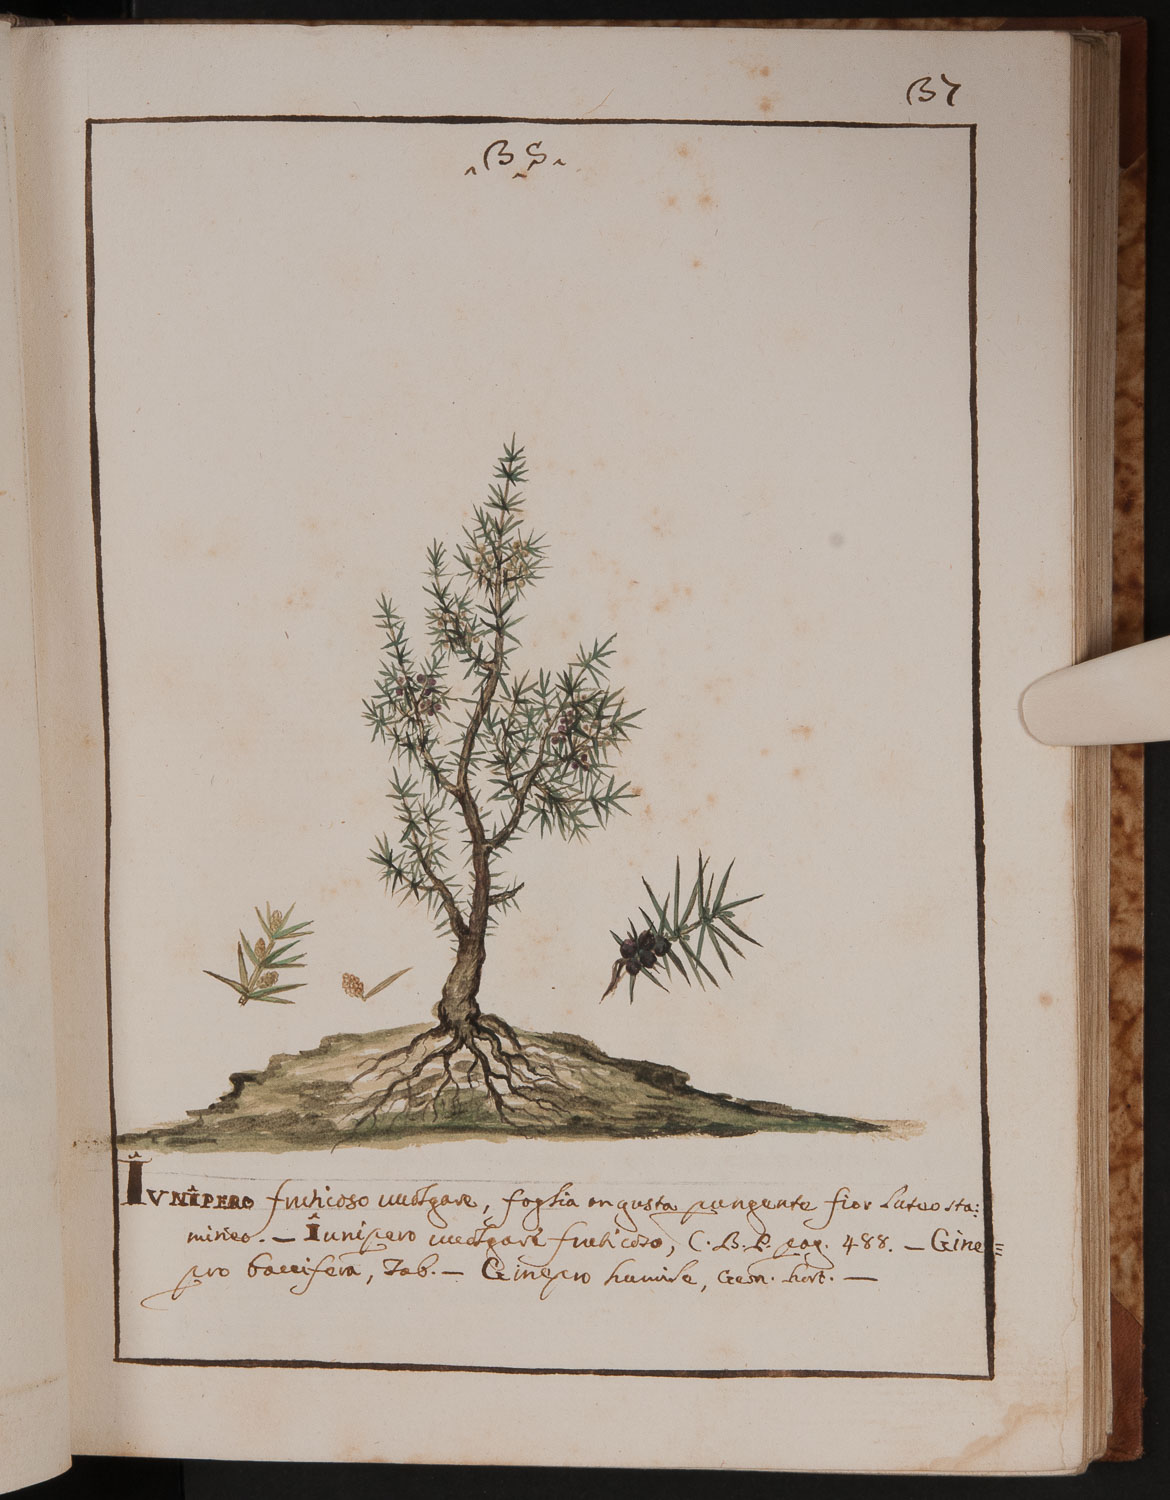 37
.35.
IVNIPERO fruticoso uuolgare, foglia angusta pungente fior luteo sta:
mineo. — Iunipero uuolgare fruticoso, C. B. P. pag. 488. — Gine=
pro baccifera, Tab. — Ginepro humile, Gesn. hort. —